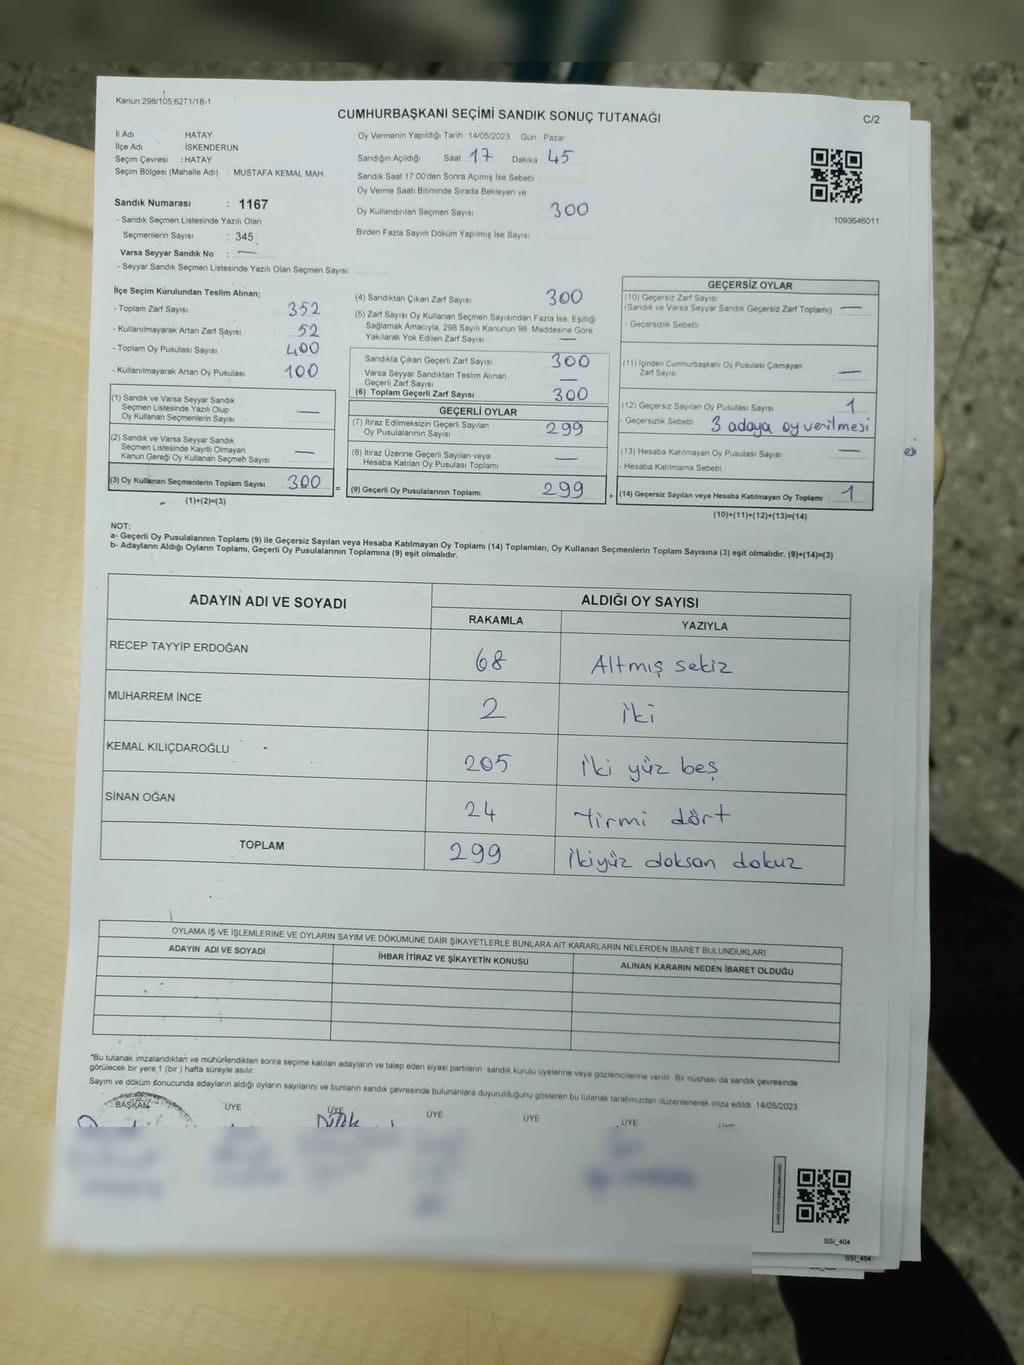 Kanun:298/105:6271/18-1
CUMHURBAŞKANI SEÇİMİ SANDIK SONUÇ TUTANAĞI
C/2
İl Adı HATAY
İlçe Adı İSKENDERUN
Seçim Çevresi :HATAY
Seçim Bölgesi (Mahalle Adı) : MUSTAFA KEMAL MAH.
Sandık Numarası : 1167
- Sandık Seçmen Listesinde Yazılı Olan
Seçmenlerin Sayısı : 345
Varsa Seyyar Sandık No : —
- Seyyar Sandık Seçmen Listesinde Yazılı Olan Seçmen Sayısı
Oy Vermenin Yapıldığı Tarih :14/05/2023 Gün Pazar
Sandığın Açıldığı Saat 17 Dakika 45
Sandık Saat 17:00'den Sonra Açımış İse Sebebi
Oy Verme Saati Bitiminde Sırada Bekleyen ve
Oy Kullandırılan Seçmen Sayısı 300
Birden Fazla Sayım Döküm Yapılmış İse Sayısı
1093646011
İlçe Seçim Kurulundan Teslim Alınan;
- Toplam Zarf Sayısı 352
- Kullanılmayarak Artan Zarf Sayısı 52
- Toplam Oy Pusulası Sayısı 400
- Kullanılmayarak Artan Oy Pusulası 100
(1) Sandık ve Varsa Seyyar Sandık
Seçmen Listesinde Yazılı Olup
Oy Kullanan Seçmenlerin Sayısı —
(2) Sandık ve Varsa Seyyar Sandık
Seçmen Listesinde Kayıtlı Olmayan
Kanun Gereği Oy Kullanan Seçmen Sayısı —
(3) Oy Kullanan Seçmenlerin Toplam Sayısı 300
(1)+(2)=(3)
(4) Sandıktan Çıkan Zarf Sayısı 300
(5) Zarf Sayısı Oy Kullanan Seçmen Sayısından Fazla İse, Eşitliği
Sağlamak Amacıyla, 298 Sayılı Kanunun 98. Maddesine Göre
Yakılarak Yok Edilen Zarf Sayısı —
Sandıkta Çıkan Geçerli Zarf Sayısı 300
Varsa Seyyar Sandıktan Teslim Alınan
Geçerli Zarf Sayısı —
(6) Toplam Geçerli Zarf Sayısı 300
GEÇERLİ OYLAR
(7) İtiraz Edilmeksizin Geçerli Sayılan
Oy Pusulalarının Sayısı 299
(8) İtiraz Üzerine Geçerli Sayılan veya
Hesaba Katılan Oy Pusulası Toplamı —
= (9) Geçerli Oy Pusulalarının Toplamı 299
GEÇERSİZ OYLAR
(10) Geçersiz Zarf Sayısı
(Sandık ve Varsa Seyyar Sandık Geçersiz Zarf Toplamı) —
- Geçersizlik Sebebi
(11) İçinden Cumhurbaşkanı Oy Pusulası Çıkmayan
Zarf Sayısı —
(12) Geçersiz Sayılan Oy Pusulası Sayısı 1
- Geçersizlik Sebebi 3 adaya oy verilmesi
(13) Hesaba Katılmayan Oy Pusulası Sayısı —
- Hesaba Katılmama Sebebi
+ (14) Geçersiz Sayılan veya Hesaba Katılmayan Oy Toplamı : 1
(10)+(11)+(12)+(13)=(14)
NOT:
a- Geçerli Oy Pusulalarının Toplamı (9) ile Geçersiz Sayılan veya Hesaba Katılmayan Oy Toplamı (14) Toplamları, Oy Kullanan Seçmenlerin Toplam Sayısına (3) eşit olmalıdır. (9)+(14)=(3)
b- Adayların Aldığı Oyların Toplamı, Geçerli Oy Pusulalarının Toplamına (9) eşit olmalıdır.
ADAYIN ADI VE SOYADI ALDIĞI OY SAYISI
RAKAMLA YAZIYLA
RECEP TAYYİP ERDOĞAN 68 Altmış sekiz
MUHARREM İNCE 2 iki
KEMAL KILIÇDAROĞLU 205 İki yüz beş
SİNAN OĞAN 24 Yirmi dört
TOPLAM 299 İkiyüz doksan dokuz
OYLAMA İŞ VE İŞLEMLERİNE VE OYLARIN SAYIM VE DÖKÜMÜNE DAİR ŞİKAYETLERLE BUNLARA AİT KARARLARIN NELERDEN İBARET BULUNDUKLARI
ADAYIN ADI VE SOYADI İHBAR İTİRAZ VE ŞİKAYETİN KONUSU ALINAN KARARIN NEDEN İBARET OLDUĞU
*Bu tutanak imzalandıktan ve mühürlendikten sonra seçime katılan adayların ve talep eden siyasi partilerin sandık kurulu üyelerine veya gözlemcilerine verilir. Bir nüshası da sandık çevresinde
görülecek bir yere 1 (bir) hafta süreyle asılır.
Sayım ve döküm sonucunda adayların aldığı oyların sayılarını ve bunların sandık çevresinde bulunanlara duyurulduğunu gösteren bu tutanak tarafımızdan düzenlenerek imza edildi. 14/05/2023
BAŞKAN ÜYE ÜYE ÜYE ÜYE ÜYE
SSI_404
SSI_404